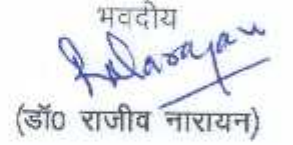 भवदीय
(डॉ0 राजीव नारायन)